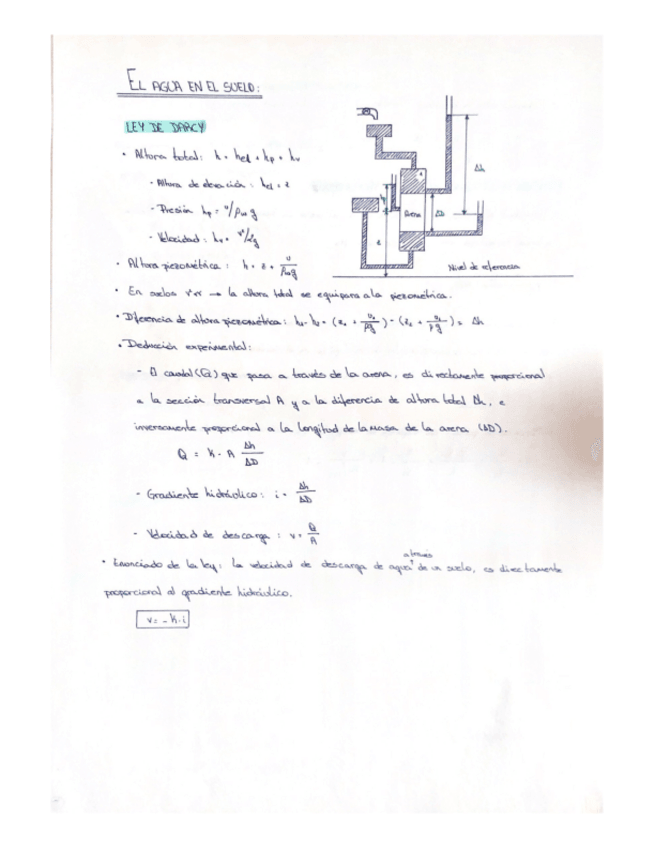 EL AGUA EN EL SUELO:
LEY DE DARCY
• Altura total: h = hel + hp + hv
- Altura de elevación: hel = z
- Presión hp = u/ρw g
- Velocidad: hv = v²/2g
• Altura piezométrica: h = z + u/ρw g
• En suelos → la altura total se equipara a la piezométrica.
• Diferencia de altura piezométrica: = Δh
• Deducción experimental:
- El caudal (Q) que pasa a través de la arena, es directamente proporcional
a la sección transversal A y a la diferencia de altura total Δh, e
inversamente proporcional a la longitud de la masa de la arena (ΔD).
Q = K · A Δh/ΔD
- Gradiente hidráulico: i = Δh/ΔD
- Velocidad de descarga: v = Q/A
• Enunciado de la ley: la velocidad de descarga de agua a través de un suelo, es directamente
proporcional al gradiente hidráulico.
v = - K · i
Δh
Arena
ΔD
z
Nivel de referencia